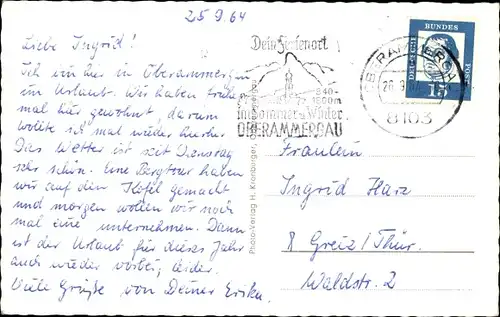 25 9. 64
Liebe Ingrid!
Ich bin hier in Oberammergau
im Urlaub. Wir haben früher
mal hier gewohnt, darum
wollte ich mal wieder hierher.
Das Wetter ist seit Dienstag
sehr schön. Eine Bergtour haben
wir auf den Kofel gemacht
und morgen wollen wir noch
mal eine unternehmen. Dann
ist der Urlaub für dieses Jahr
auch wieder vorbei, leider.
Viele Grüße von Deiner Erika.
Photo-Verlag H. Kronburger,
Dein Ferienort
840-
1800m
im Sommer u. Winter
OBERAMMERGAU
OBERAMMERGAU
8103
DEUTSCHE
BUNDES
POST
15
Fräulein
Ingrid Harz
8 Greiz/Thür.
Waldstr. 2